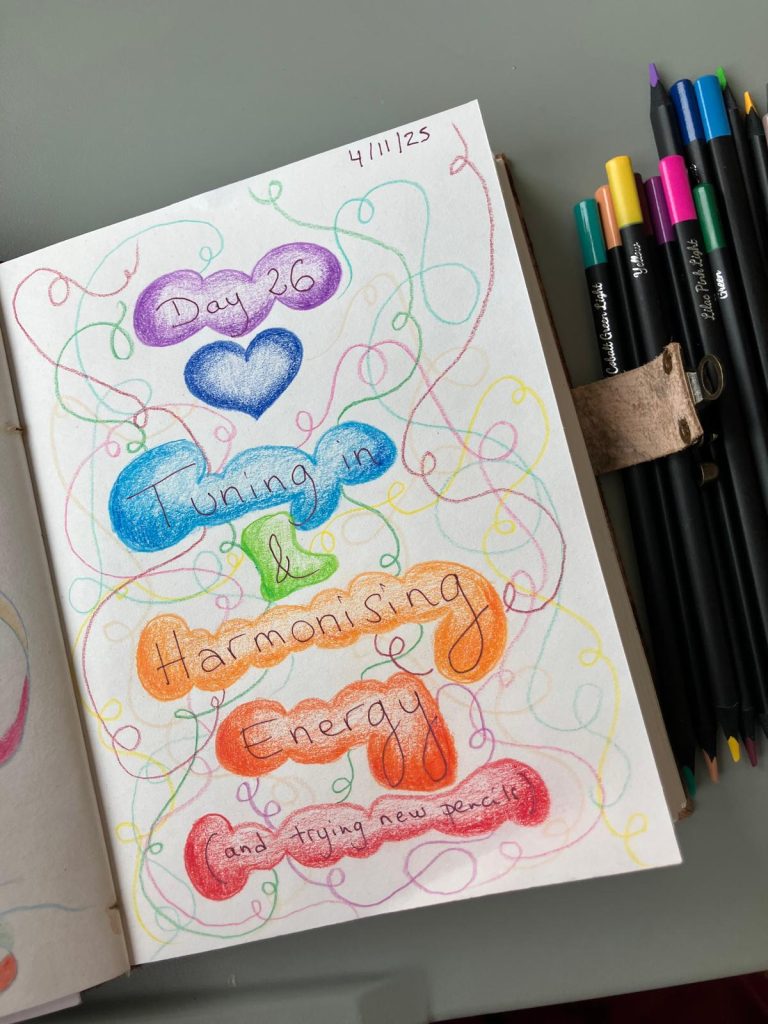 4/11/25
Day 26
Tuning in
&
Harmonising
Energy
(and trying new pencils)
Cobalt Green Light
Yellow
Lilac Pink Light
Green